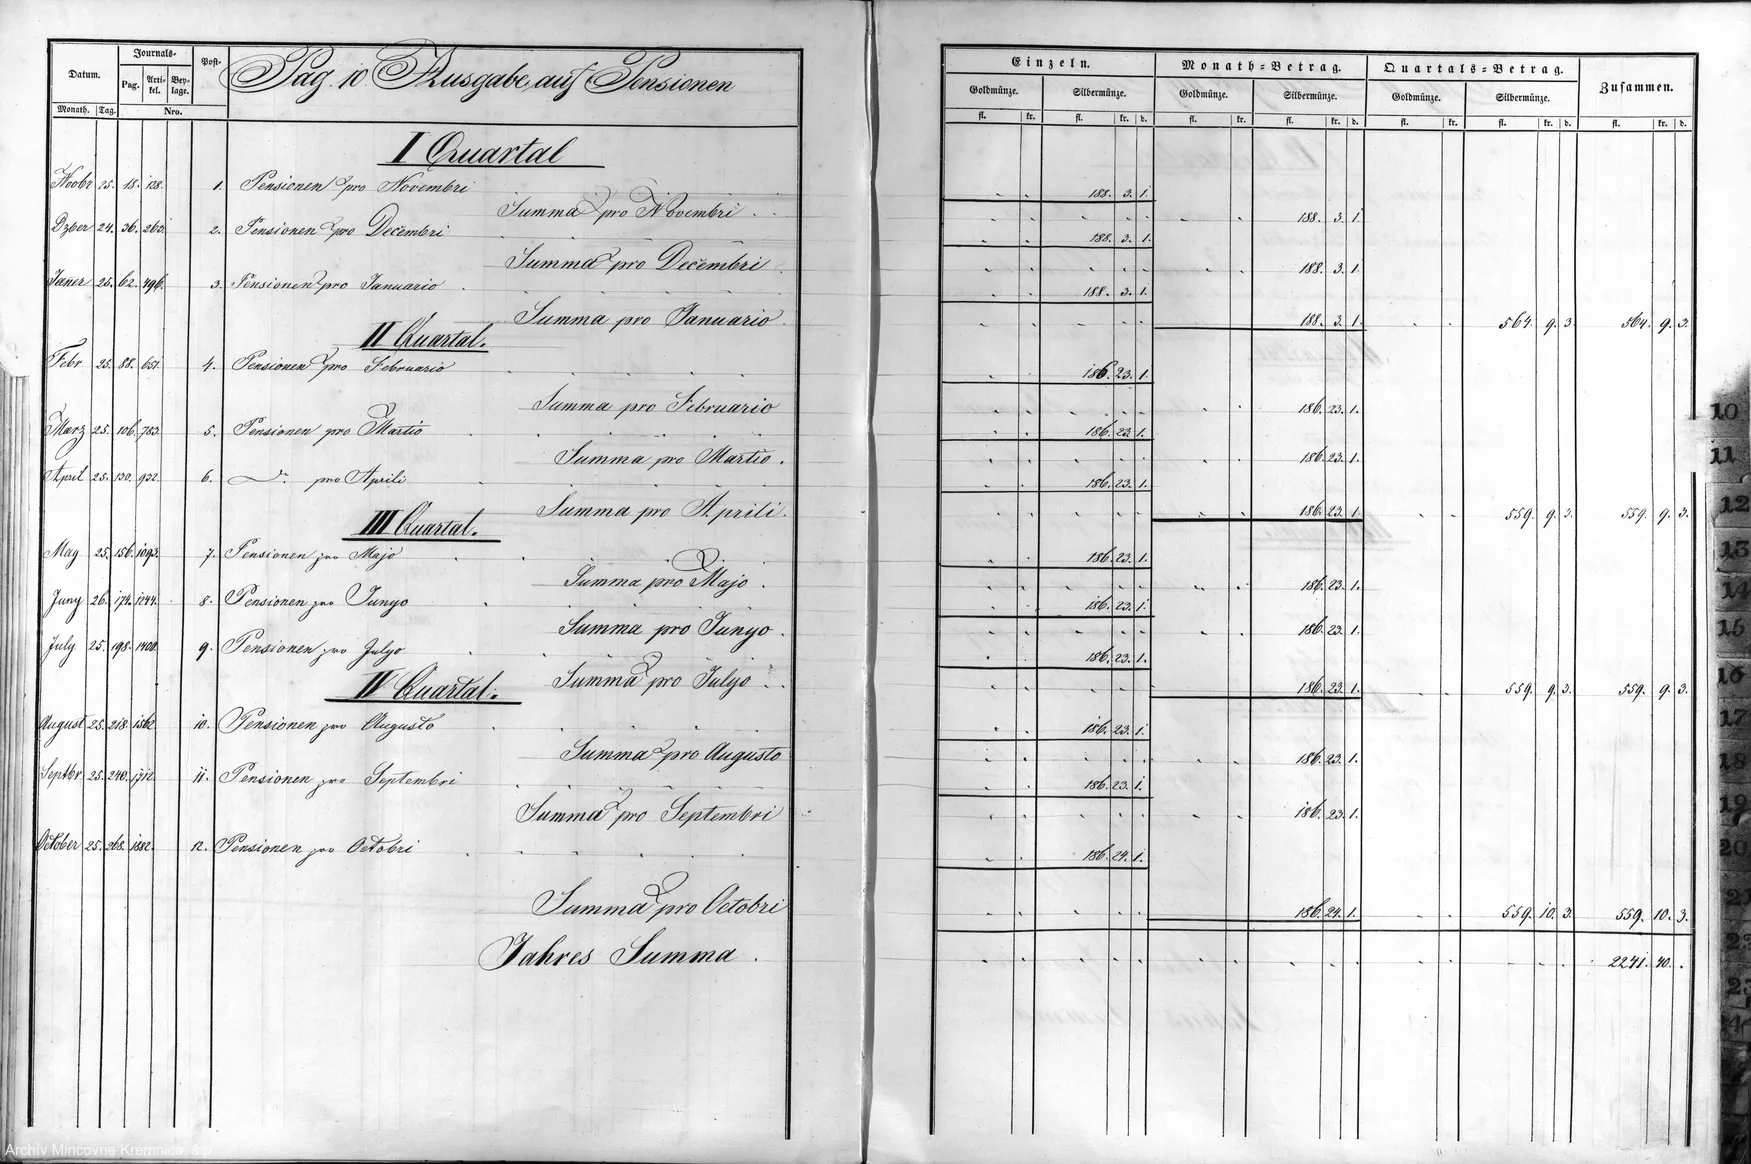 Datum. Journals- Post- Pag. 10. Ausgabe auf Pensionen
Pag. Arti-kel. Bey-lage.
Monath. Tag. Nro.
Einzeln. Monath-Betrag. Quartals-Betrag. Zusammen.
Goldmünze. Silbermünze. Goldmünze. Silbermünze. Goldmünze. Silbermünze.
fl. kr. fl. kr. d. fl. kr. fl. kr. d. fl. kr. fl. kr. d. fl. kr. d.
I Quartal
Novbr 25. 18. 128. 1. Pensionen pro Novembri 188. 3. 1.
Summa pro Novembri 188. 3. 1.
Dzber 24. 36. 263. 2. Pensionen pro Decembri 188. 3. 1.
Summa pro Decembri 188. 3. 1.
Jäner 25. 62. 496. 3. Pensionen pro Januario 188. 3. 1.
Summa pro Januario 188. 3. 1. 564. 9. 3. 564. 9. 3.
II Quartal.
Febr 25. 88. 651. 4. Pensionen pro Februario 186. 23. 1.
Summa pro Februario 186. 23. 1.
März 25. 106. 783. 5. Pensionen pro Martio 186. 23. 1.
Summa pro Martio. 186. 23. 1.
April 25. 130. 932. 6. dto pro Aprili 186. 23. 1.
Summa pro Aprili. 186. 23. 1. 559. 9. 3. 559. 9. 3.
III Quartal.
May 25. 156. 1093. 7. Pensionen pro Majo 186. 23. 1.
Summa pro Majo. 186. 23. 1.
Juny 26. 174. 1244. 8. Pensionen pro Junyo 186. 23. 1.
Summa pro Junyo. 186. 23. 1.
July 25. 198. 1408. 9. Pensionen pro Julyo 186. 23. 1.
Summa pro Julyo 186. 23. 1. 559. 9. 3. 559. 9. 3.
IV Quartal.
August 25. 218. 1562. 10. Pensionen pro Augusto 186. 23. 1.
Summa pro Augusto 186. 23. 1.
Septbr 25. 240. 1712. 11. Pensionen pro Septembri 186. 23. 1.
Summa pro Septembri 186. 23. 1.
October 25. 268. 1882. 12. Pensionen pro Octobri 186. 24. 1.
Summa pro Octobri 186. 24. 1. 559. 10. 3. 559. 10. 3.
Jahres Summa. 2241. 40.
10
11
12
13
14
15
16
17
18
19
20
21
22
23
24
Archív Mincovne Kremnica, š.p.